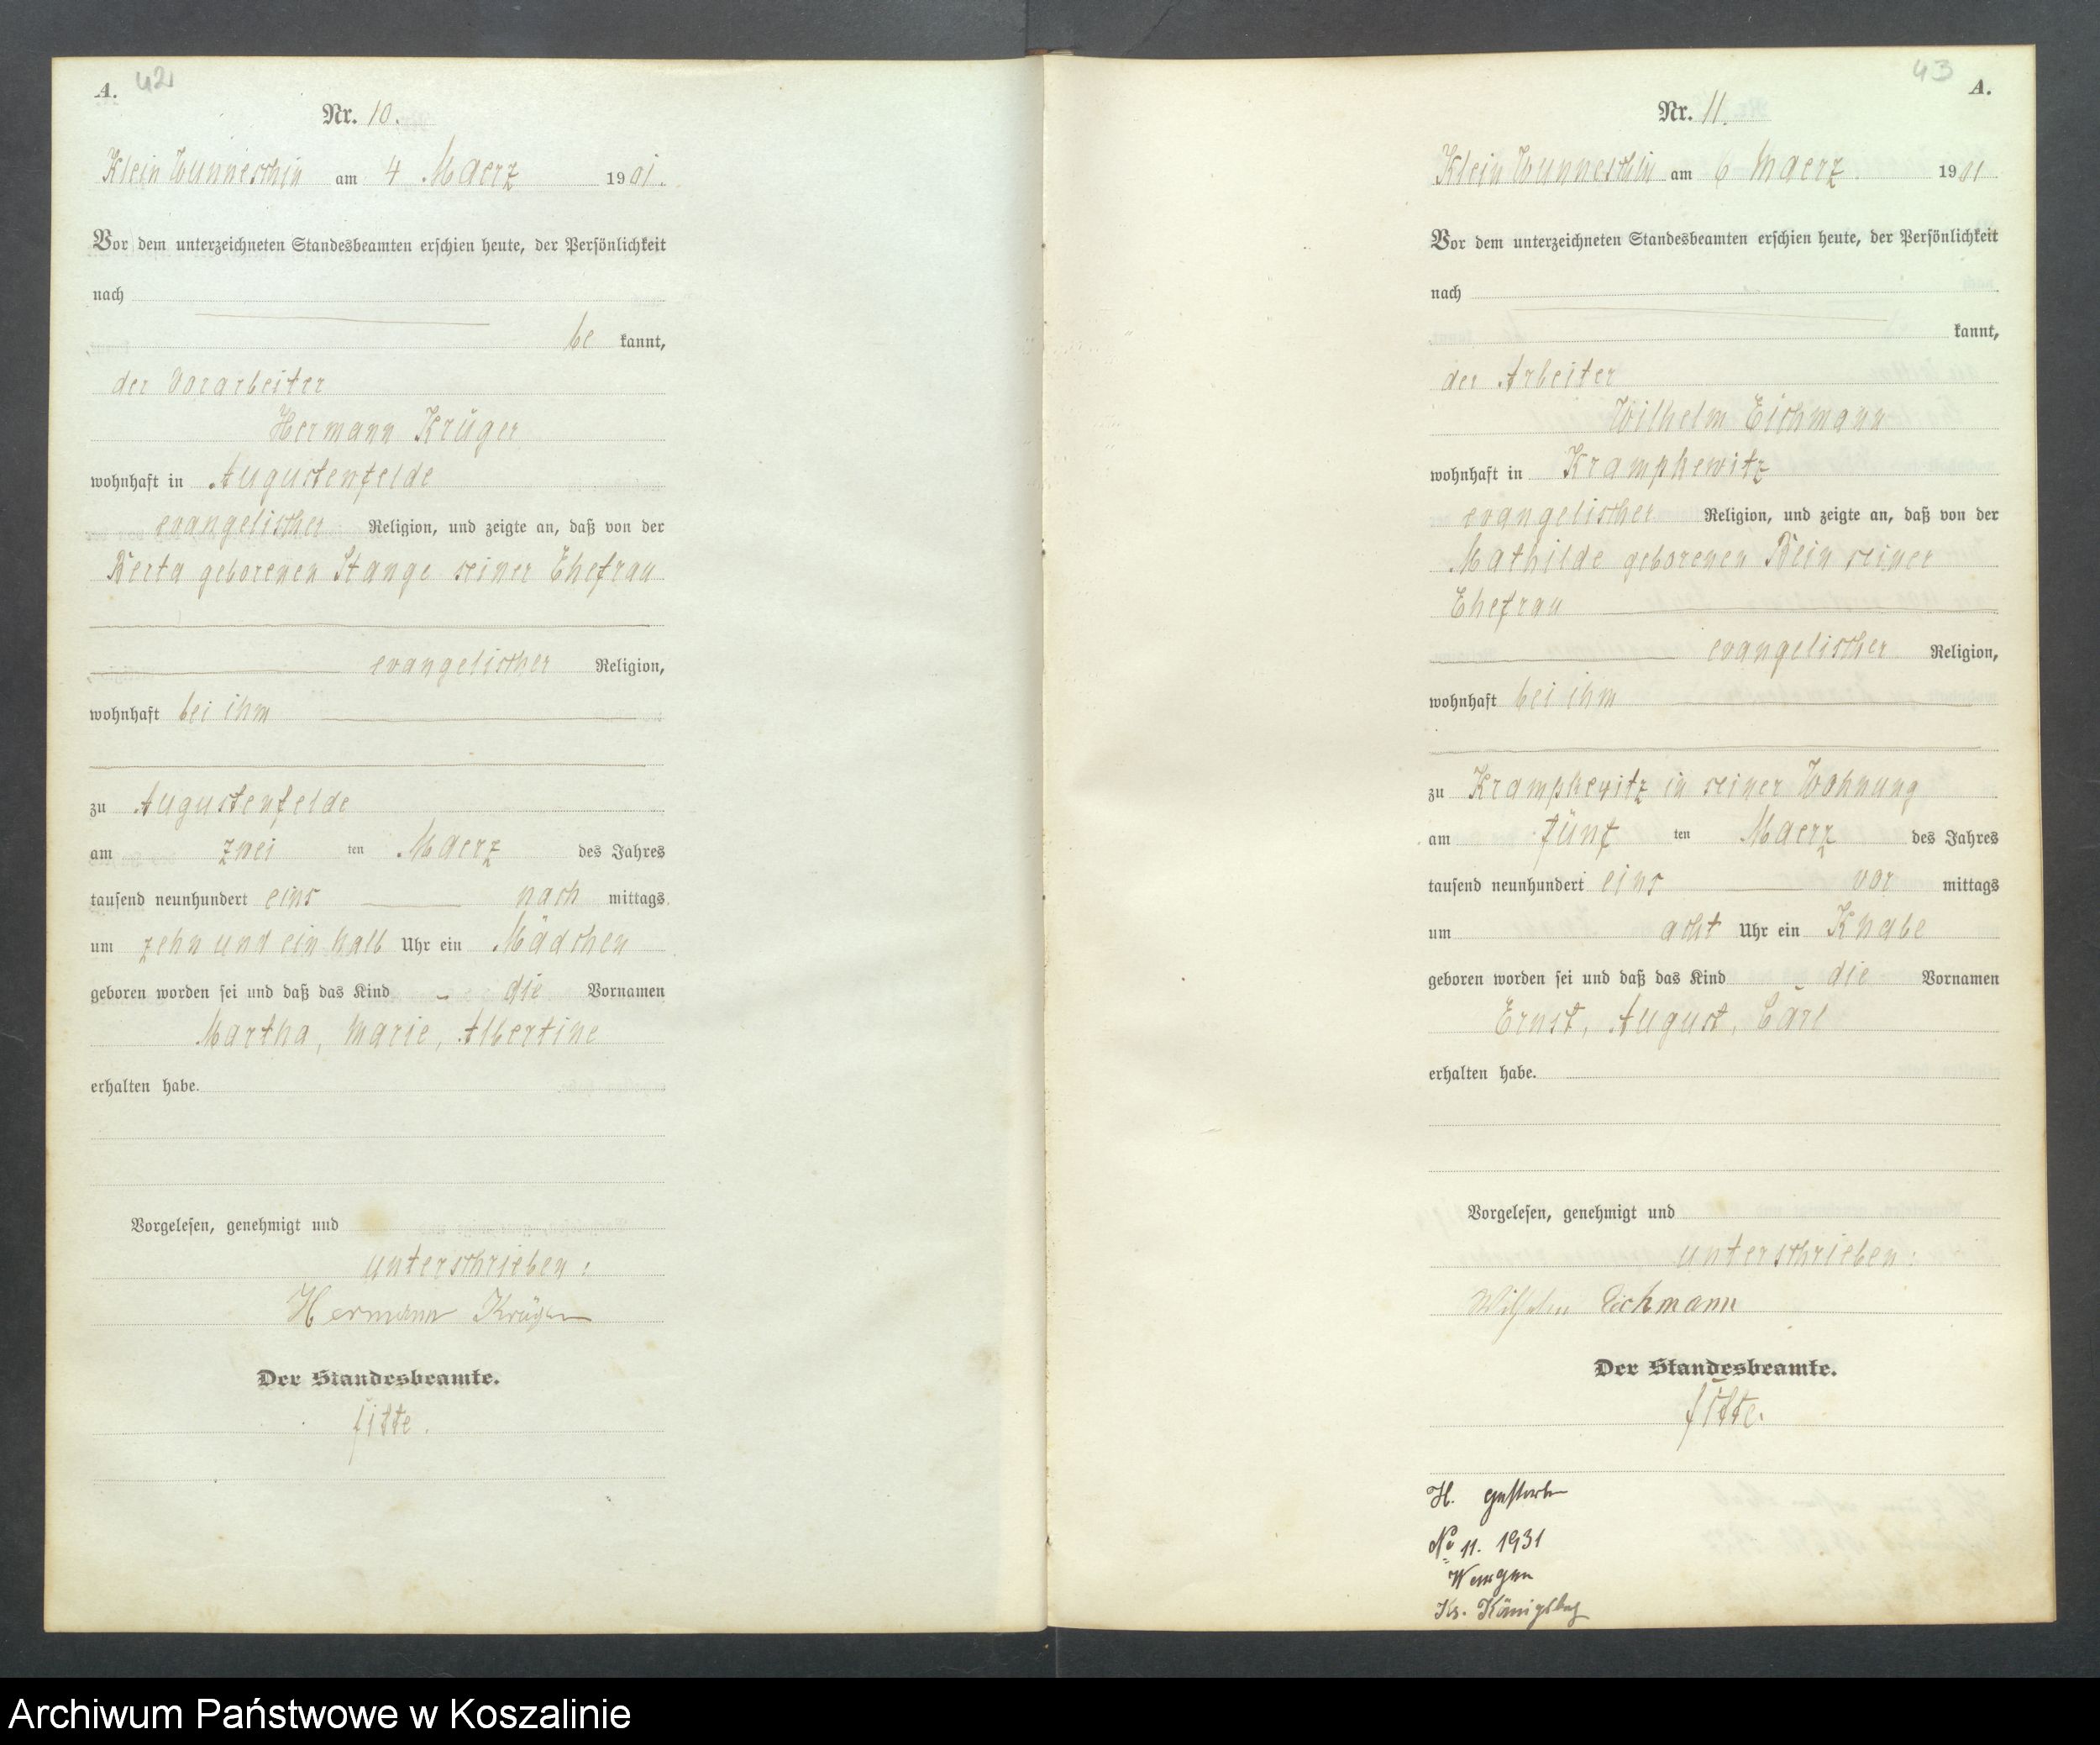 A. 42
Nr. 10.
Klein Wunneschin am 4 Maerz 1901.
Vor dem unterzeichneten Standesbeamten erschien heute, der Persönlichkeit
nach
be kannt,
der Vorarbeiter
Hermann Krüger
wohnhaft in Augustenfelde
evangelischer Religion, und zeigte an, daß von der
Berta geborenen Stange seiner Ehefrau
evangelischer Religion,
wohnhaft bei ihm
zu Augustenfelde
am zwei ten Maerz des Jahres
tausend neunhundert eins nach mittags
um zehn und ein halb Uhr ein Mädchen
geboren worden sei und daß das Kind die Vornamen
Martha, Marie, Albertine
erhalten habe.
Vorgelesen, genehmigt und
unterschrieben:
Hermann Krüger
Der Standesbeamte.
fitte.
43 A.
Nr. 11.
Klein Wunneschin am 6 Maerz 1901
Vor dem unterzeichneten Standesbeamten erschien heute, der Persönlichkeit
nach
kannt,
der Arbeiter
Wilhelm Eichmann
wohnhaft in Krampkewitz
evangelischer Religion, und zeigte an, daß von der
Mathilde geborenen Bein seiner
Ehefrau
evangelischer Religion,
wohnhaft bei ihm
zu Krampkewitz in seiner Wohnung
am fünf ten Maerz des Jahres
tausend neunhundert eins vor mittags
um acht Uhr ein Knabe
geboren worden sei und daß das Kind die Vornamen
Ernst, August, Carl
erhalten habe.
Vorgelesen, genehmigt und
unterschrieben:
Wilhelm Eichmann
Der Standesbeamte.
fitte.
H. gestorben
No 11. 1931
Ks. Königsberg
Archiwum Państwowe w Koszalinie